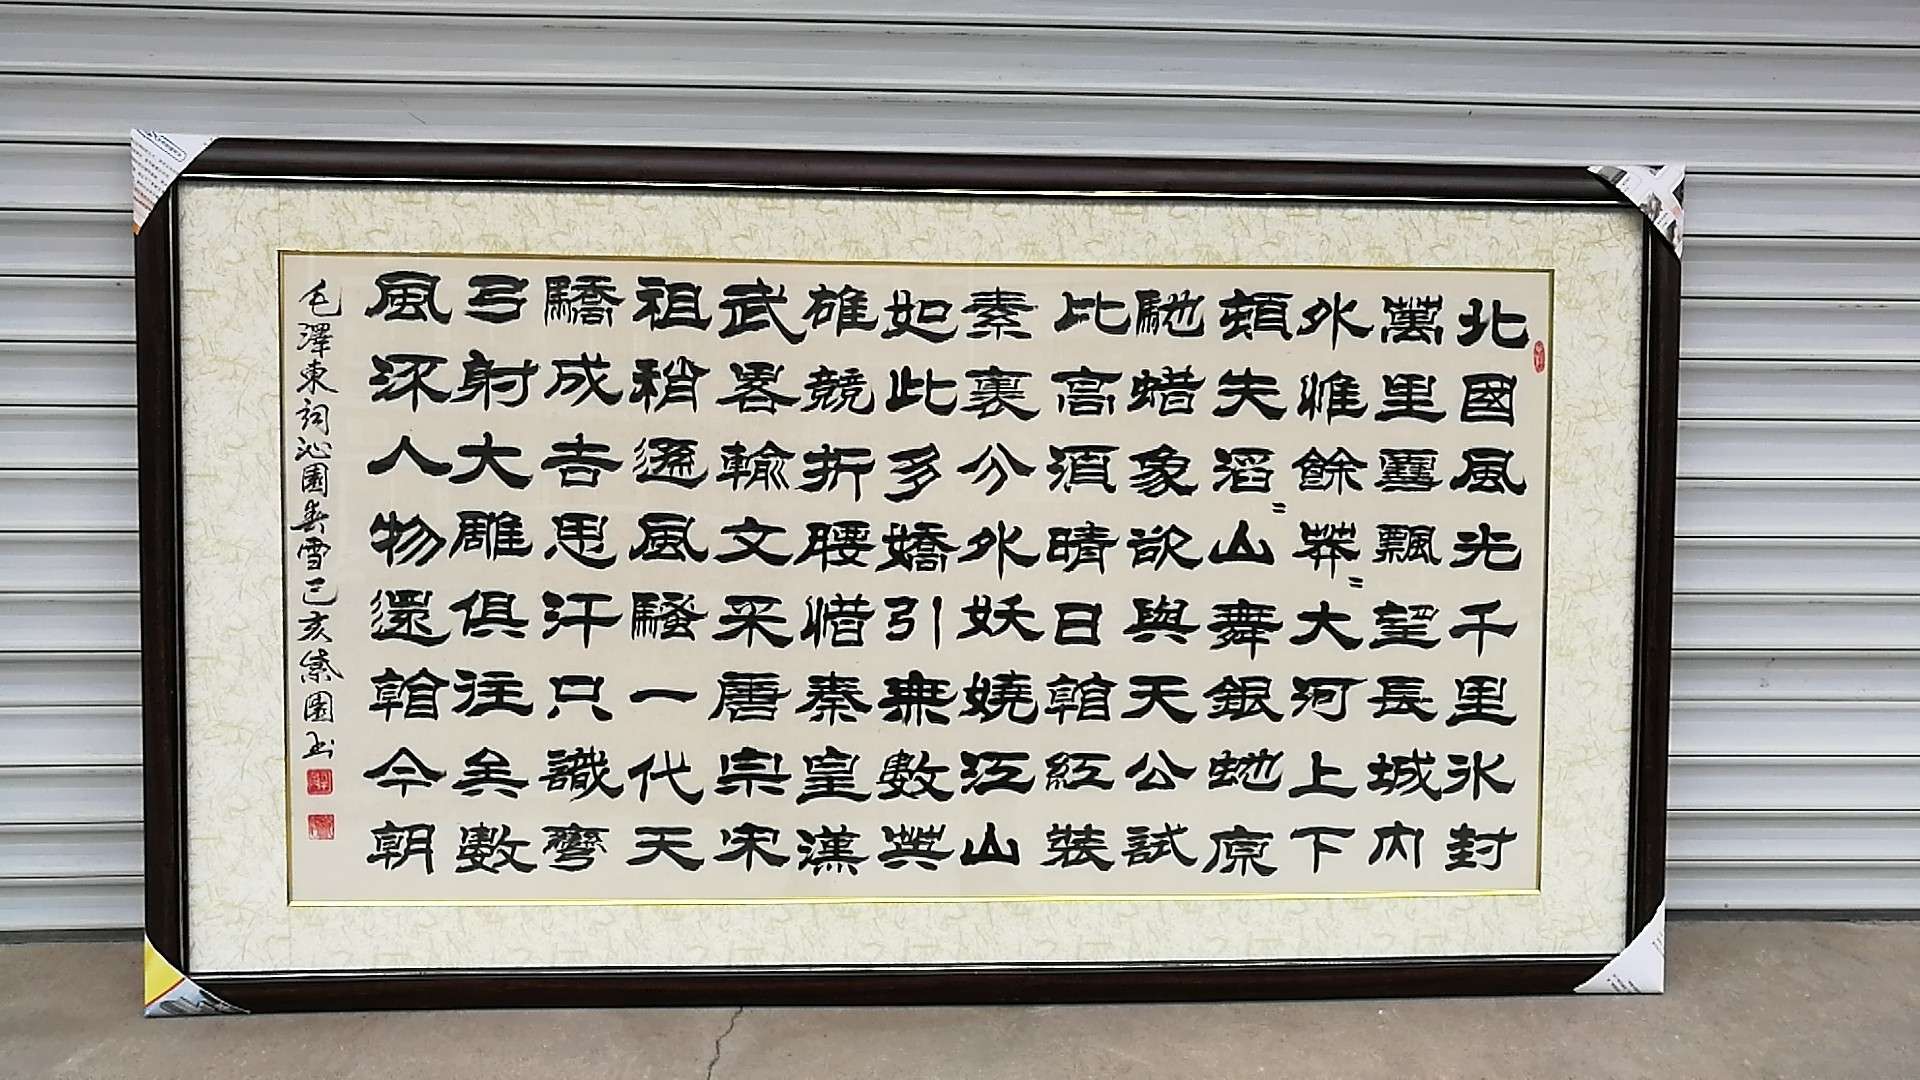 北國風光千里冰封
萬里雪飄望長城內
外惟餘莽=大河上下
頓失滔=山舞銀蛇原
馳蜡象欲與天公試
比高須晴日看紅裝
素裹分外妖嬈江山
如此多嬌引無數英
雄競折腰惜秦皇漢
武畧輸文采唐宗宋
祖稍遜風騷一代天
驕成吉思汗只識彎
弓射大雕俱往矣數
風流人物還看今朝
毛澤東詞沁園春雪己亥園书